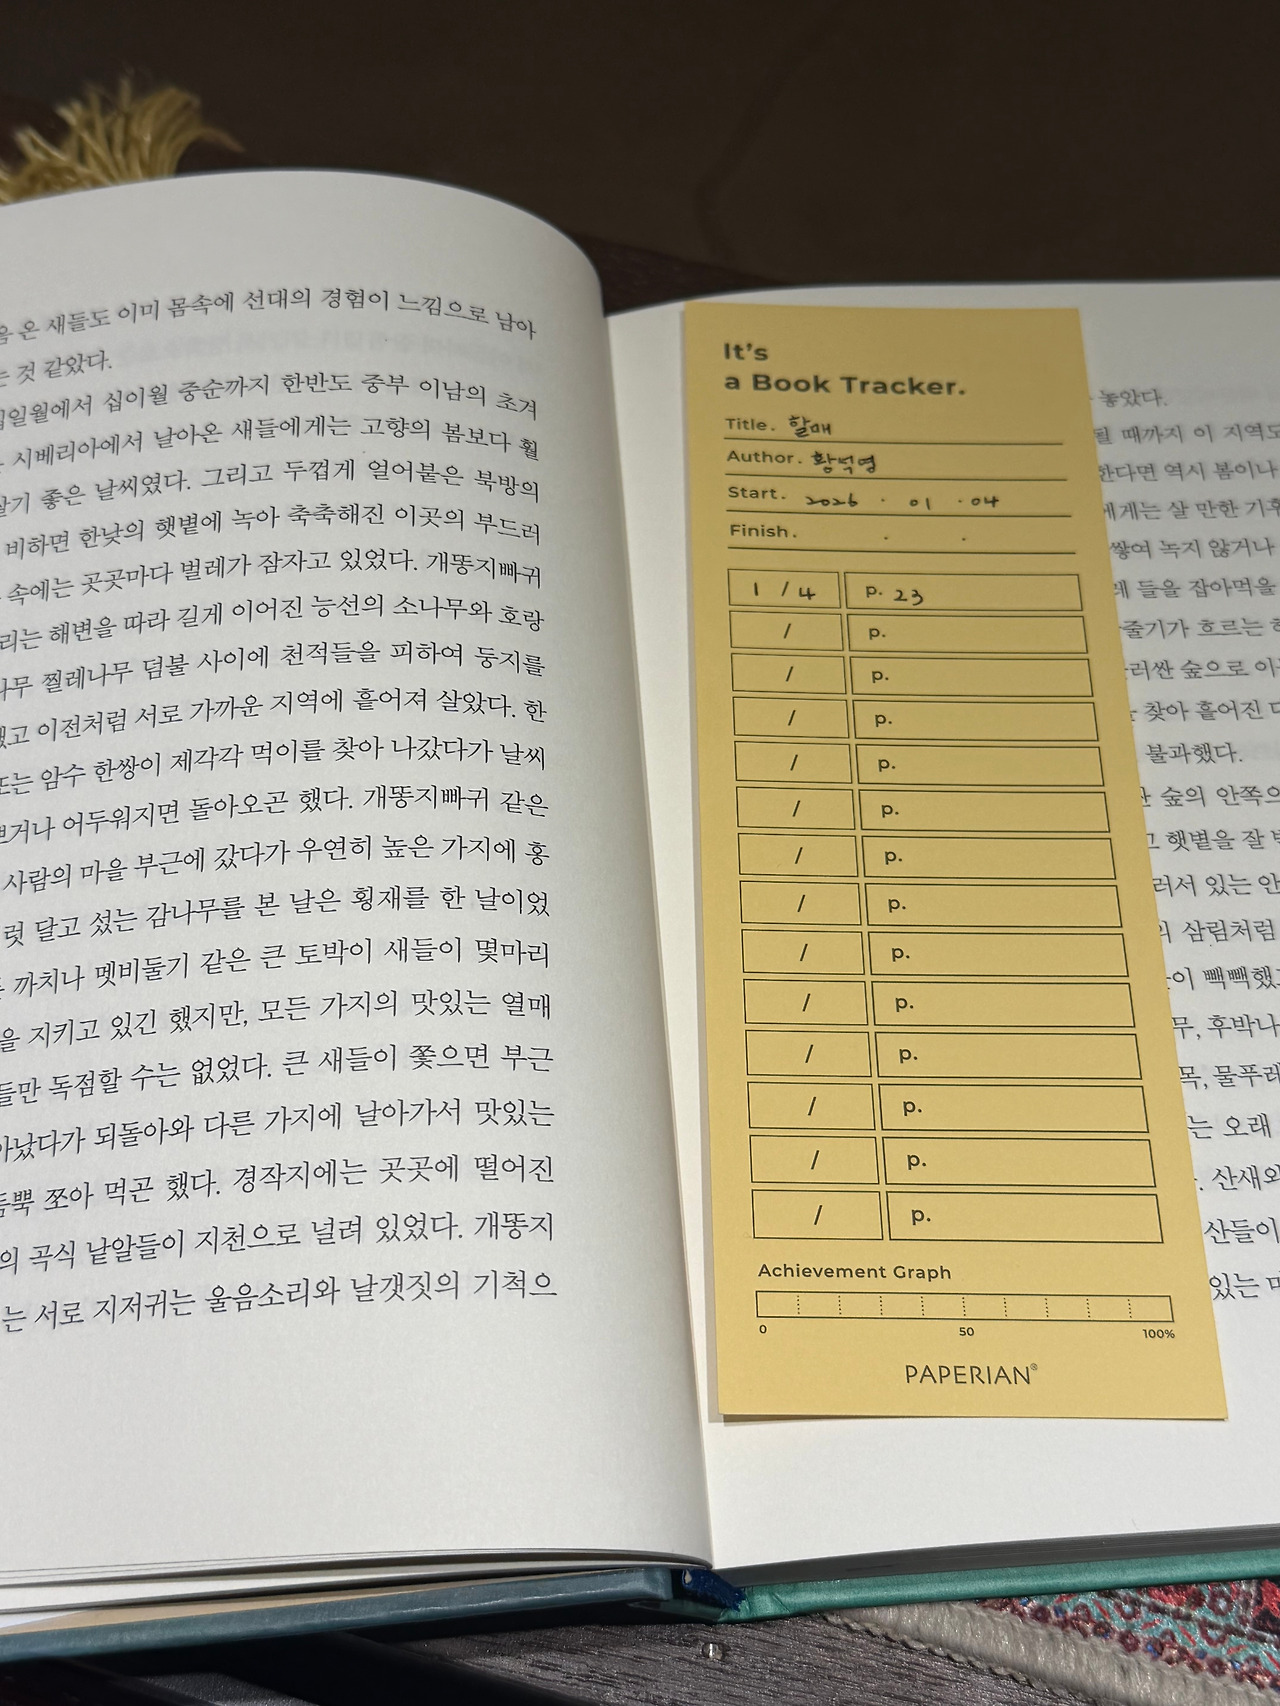 음 온 새들도 이미 몸속에 선대의 경험이 느낌으로 남아
는 것 같았다.
십일월에서 십이월 중순까지 한반도 중부 이남의 초겨
시베리아에서 날아온 새들에게는 고향의 봄보다 훨
살기 좋은 날씨였다. 그리고 두껍게 얼어붙은 북방의
비하면 한낮의 햇볕에 녹아 축축해진 이곳의 부드러
속에는 곳곳마다 벌레가 잠자고 있었다. 개똥지빠귀
리는 해변을 따라 길게 이어진 능선의 소나무와 호랑
나무 찔레나무 덤불 사이에 천적들을 피하여 둥지를
했고 이전처럼 서로 가까운 지역에 흩어져 살았다. 한
또는 암수 한쌍이 제각각 먹이를 찾아 나갔다가 날씨
쁘거나 어두워지면 돌아오곤 했다. 개똥지빠귀 같은
사람의 마을 부근에 갔다가 우연히 높은 가지에 홍
럿 달고 섰는 감나무를 본 날은 횡재를 한 날이었
까치나 멧비둘기 같은 큰 토박이 새들이 몇마리
을 지키고 있긴 했지만, 모든 가지의 맛있는 열매
들만 독점할 수는 없었다. 큰 새들이 쫓으면 부근
아났다가 되돌아와 다른 가지에 날아가서 맛있는
듬뿍 쪼아 먹곤 했다. 경작지에는 곳곳에 떨어진
의 곡식 낱알들이 지천으로 널려 있었다. 개똥지
는 서로 지저귀는 울음소리와 날갯짓의 기척으
It's
a Book Tracker.
Title. 할매
Author. 황석영
Start. 2026 . 01 . 04
Finish. . .
1 / 4 p. 23
/ p.
/ p.
/ p.
/ p.
/ p.
/ p.
/ p.
/ p.
/ p.
/ p.
/ p.
/ p.
/ p.
Achievement Graph
0 50 100%
PAPERIAN®
놓았다.
될 때까지 이 지역도
한다면 역시 봄이나
에게는 살 만한 기후
쌓여 녹지 않거나
들을 잡아먹을
줄기가 흐르는
러싼 숲으로
찾아 흩어진
불과했다.
숲의 안쪽으
햇볕을 잘
러서 있는 안
의 삼림처럼
이 빽빽했
무, 후박나
목, 물푸레
는 오래
산새와
산들이
있는